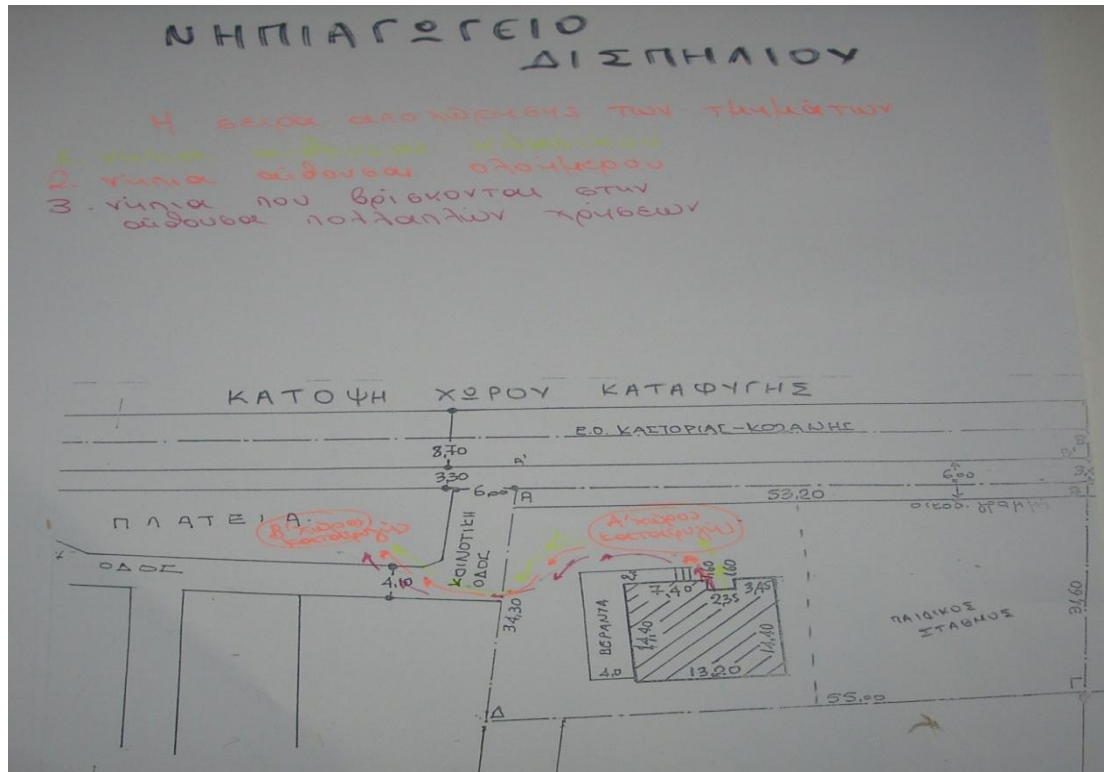 ΝΗΠΙΑΓΩΓΕΙΟ
ΔΙΣΠΗΛΙΟΥ
Η σειρα αποχώρησης των τμημάτων
1. νηπια
2. νήπια αίθουσας ολοήμερου
3. νήπια που βρίσκονται στην
αίθουσα πολλαπλών χρήσεων
ΚΑΤΟΨΗ ΧΩΡΟΥ ΚΑΤΑΦΥΓΗΣ
Ε.Ο. ΚΑΣΤΟΡΙΑΣ-ΚΟΖΑΝΗΣ
8,70
Α'
3,30
6,00
Α
53,20
6,00
οικοδ. γραμμή
ΠΛΑΤΕΙΑ
Β' χώρος
καταφυγής
Α' χώρος
καταφυγής
ΚΟΙΝΟΤΙΚΗ
ΟΔΟΣ
ΟΔΟΣ
4,10
34,30
ΒΕΡΑΝΤΑ
4,0
7,40
1,60
1,60
2,35
3,45
14,40
14,40
13,20
ΠΑΙΔΙΚΟΣ
ΣΤΑΘΜΟΣ
31,60
55,00
Γ
Δ